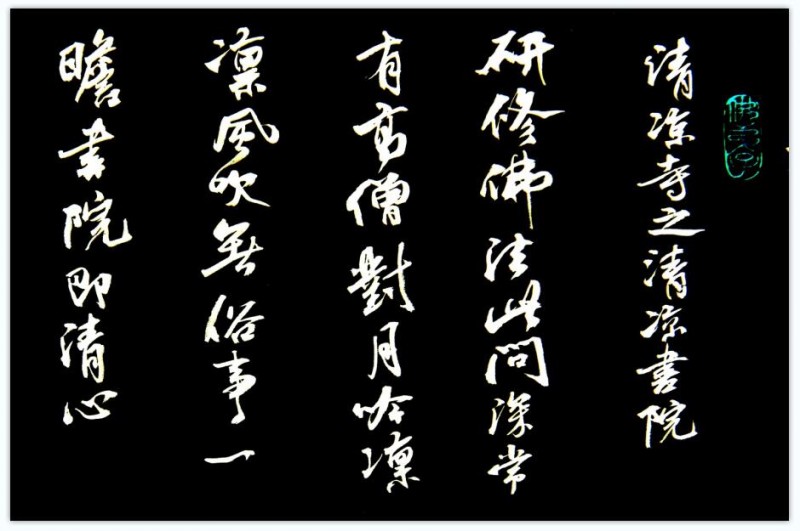 清凉寺之清凉書院
研修佛法此問深常
有高僧對月吟凛
凛風吹無俗事一
瞻書院即清心